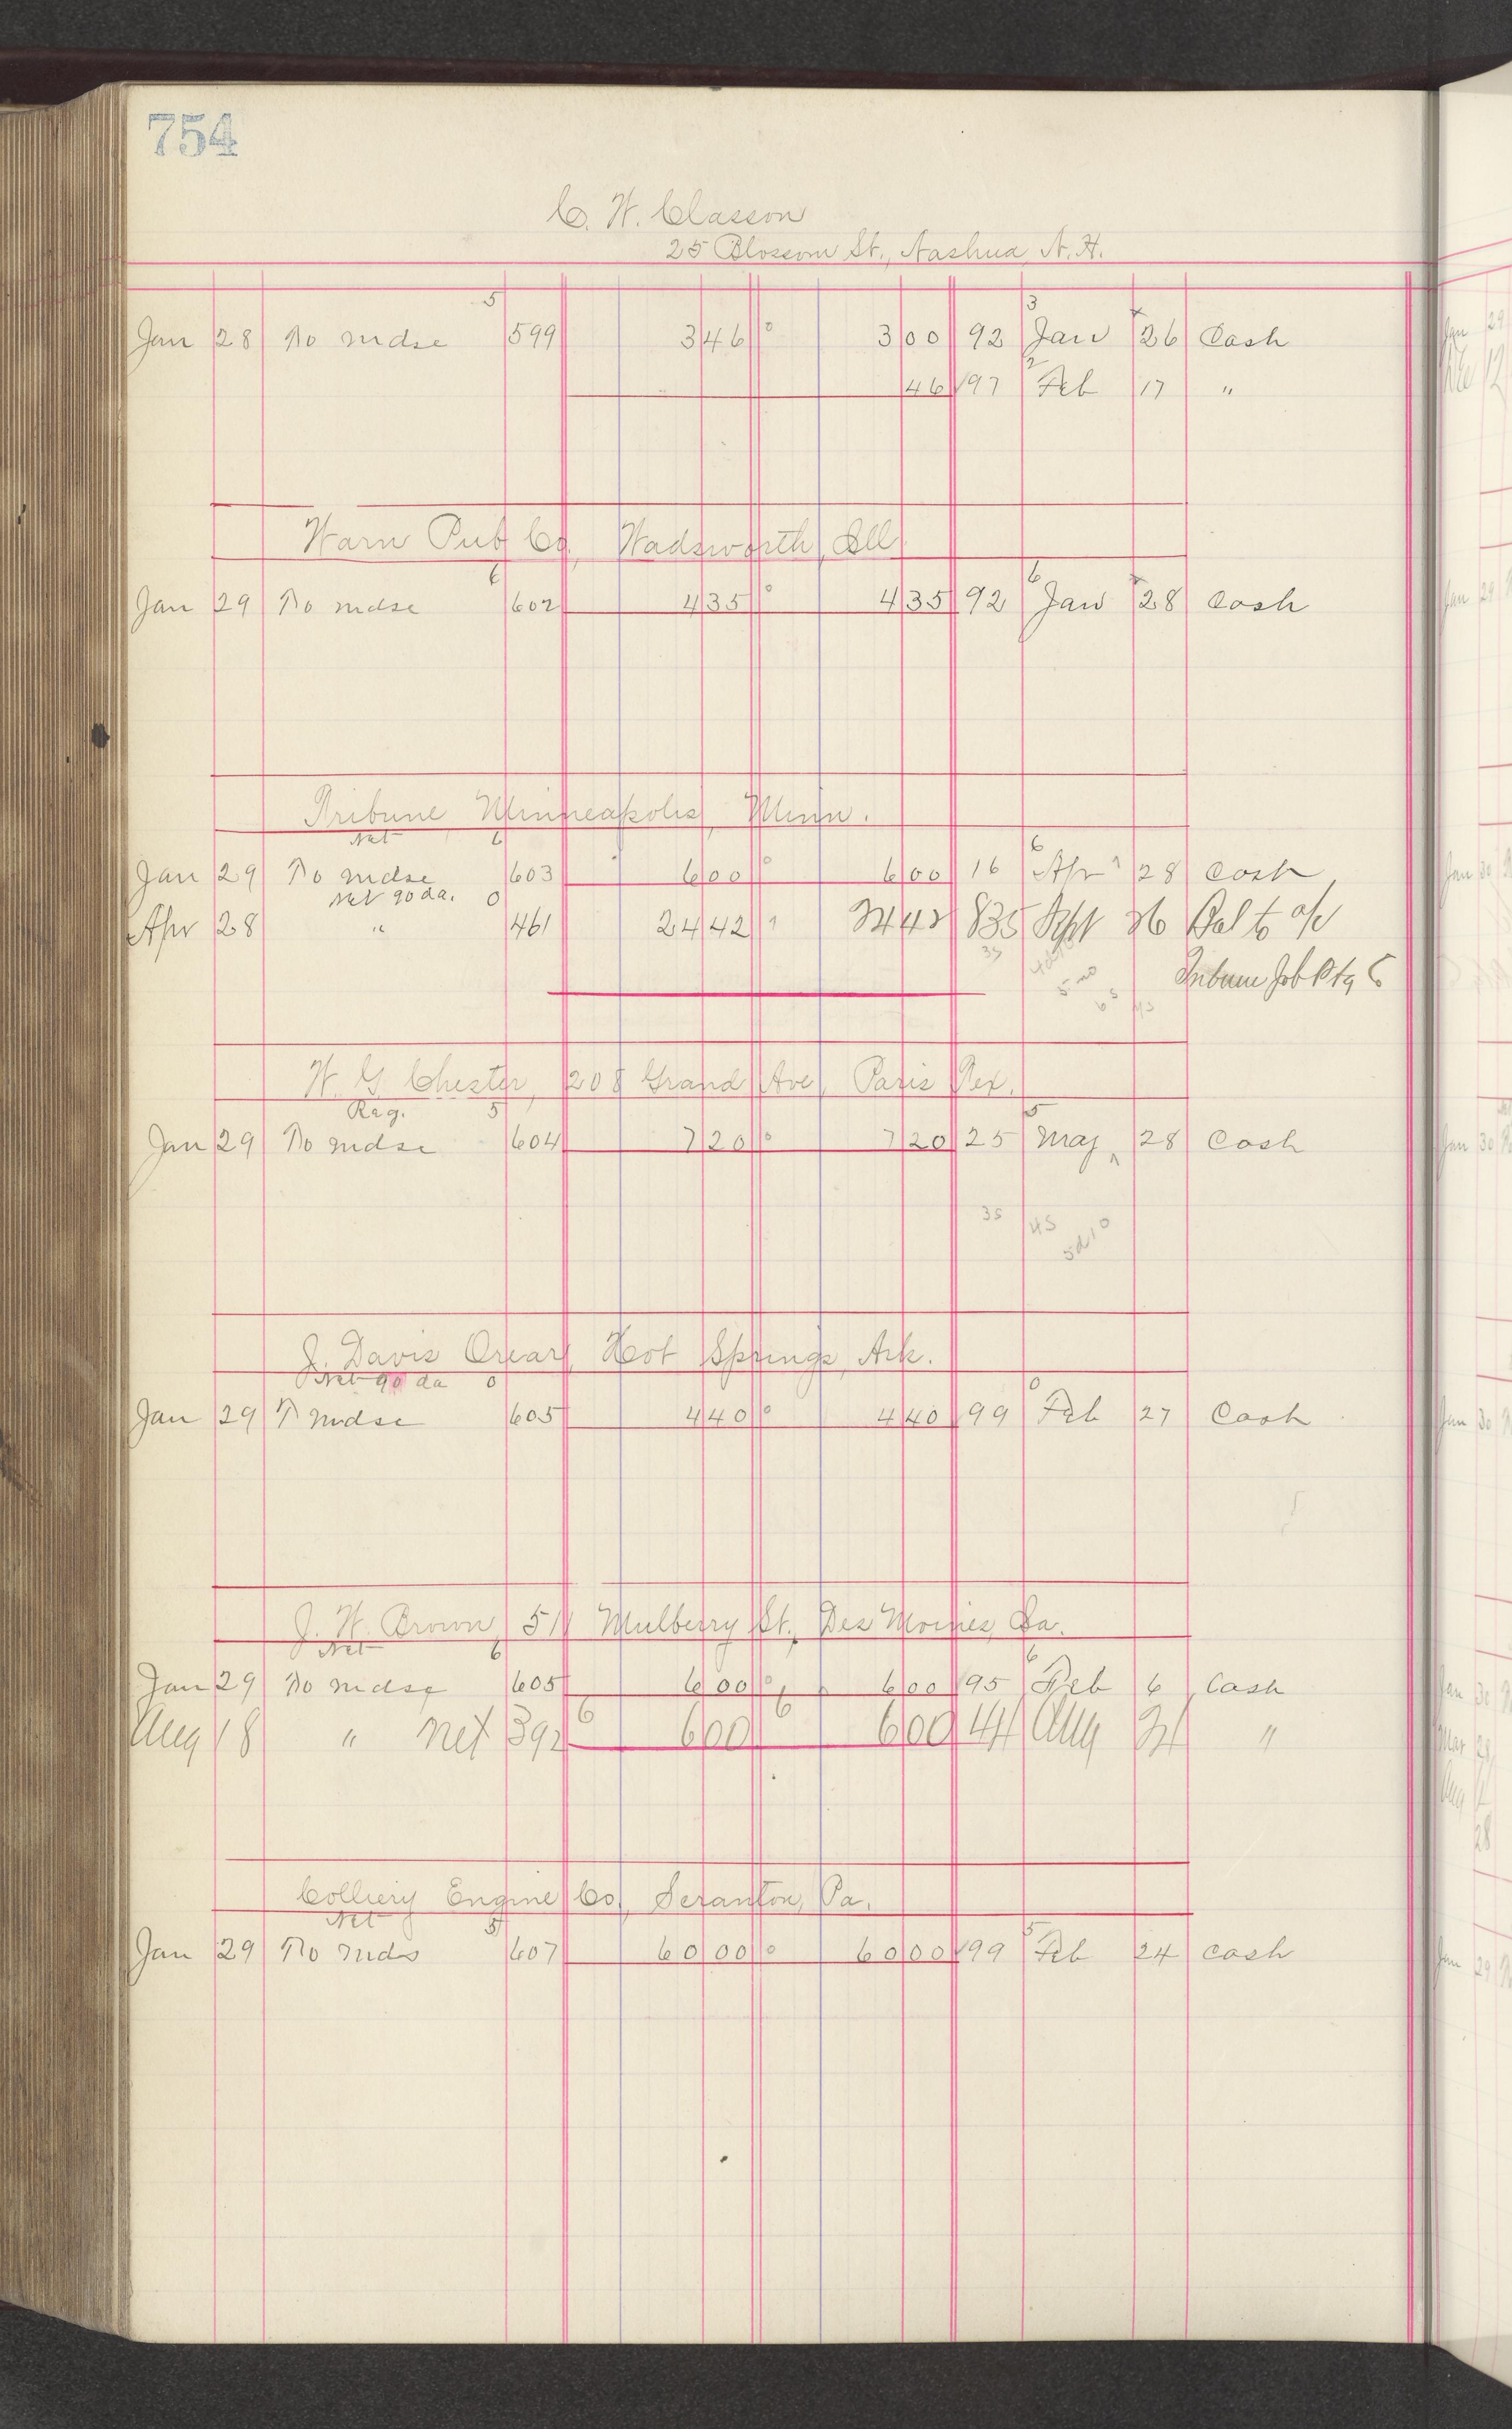 754
C. W. Classon
25 Blossom St., Nashua, N. H.
5 3
Jan 28 To mdse 599 346 0 300 92 Jan 26 Cash
2
46 97 Feb 17 "
Warn Pub Co., Wadsworth, Ill.
6 6
Jan 29 To mdse 602 435 0 435 92 Jan 28 Cash
Tribune Minneapolis, Minn.
Net 6 6
Jan 29 To mdse 603 600 0 600 16 Apr 28 Cash
Net 90 da. 0
Apr 28 " 461 2442 2442 835 Sept 26 Bal to a/c
35
Tribune Job Ptg Co
5 mo
W. G. Chester, 208 Grand Ave, Paris Tex.
Reg. 5 5
Jan 29 To mdse 604 720 0 720 25 May 28 Cash
35 45
J. Davis Orear, Hot Springs, Ark.
Net 90 da 0 0
Jan 29 T mdse 605 440 0 440 99 Feb 27 Cash
J. W. Brown, 511 Mulberry St., Des Moines, Ia.
Net 6 6
Jan 29 To mdse 605 600 0 600 95 Feb 6 Cash
Aug 18 " Net 392 6 600 6 600 44 Aug 24 "
Colliery Engine Co., Scranton, Pa.
Net 5 5
Jan 29 To mds 607 6000 0 6000 99 Feb 24 Cash